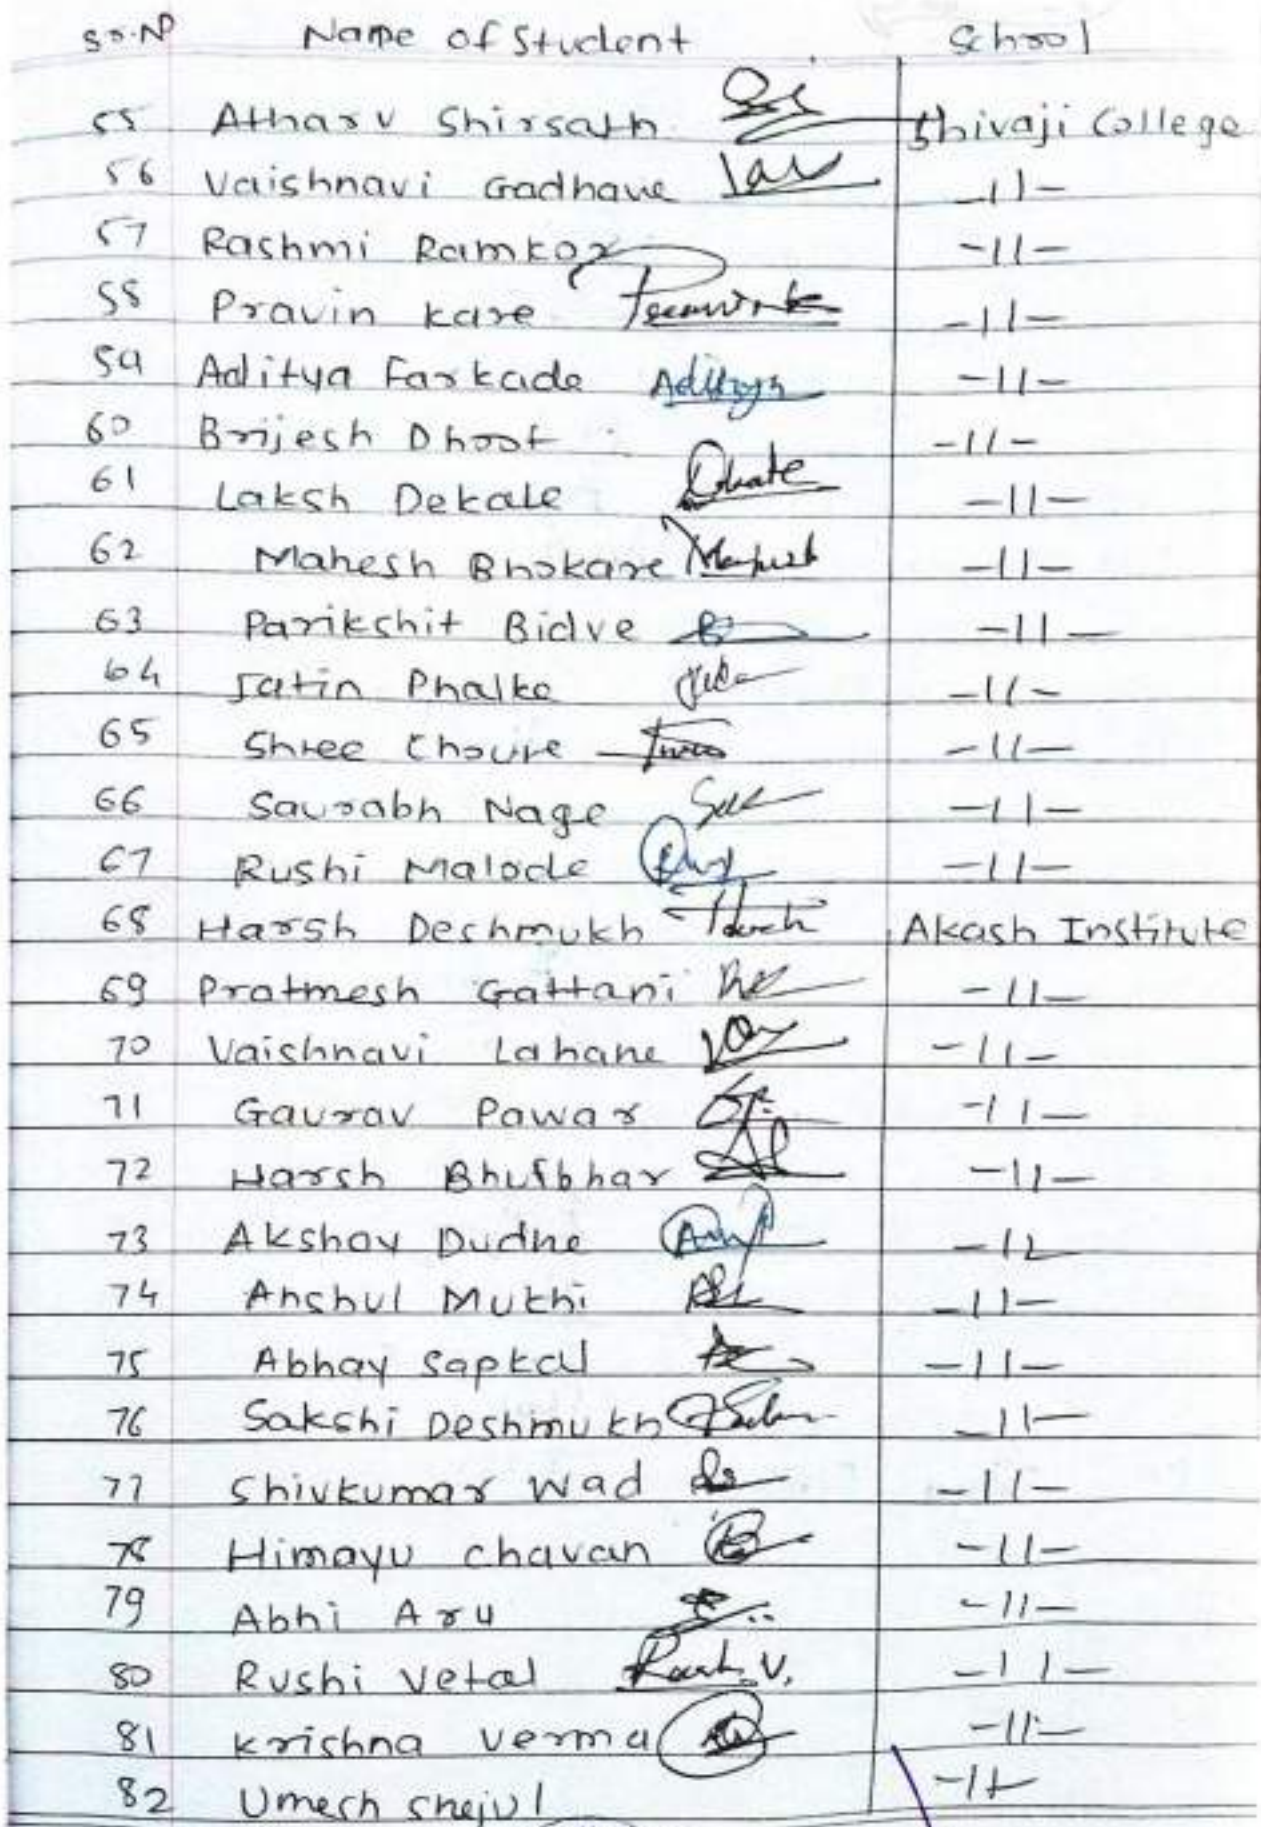 Sr.No Name of Student School
55 Atharv Shirsath Shivaji College
56 Vaishnavi Gadhave -11-
57 Rashmi Ramkor -11-
58 Pravin kare -11-
59 Aditya Farkade Aditya -11-
60 Brijesh Dhoot -11-
61 Laksh Dekale -11-
62 Mahesh Bhokare -11-
63 Parikshit Bidve -11-
64 Jatin Phalke -11-
65 Shree Choure -11-
66 Saurabh Nage -11-
67 Rushi Malode -11-
68 Harsh Deshmukh Harsh Akash Institute
69 Pratmesh Gattani -11-
70 Vaishnavi Lahane -11-
71 Gaurav Pawar -11-
72 Harsh Bhusbhar -11-
73 Akshay Dudhe -11-
74 Anshul Mukhi -11-
75 Abhay Sapkal -11-
76 Sakshi Deshmukh -11-
77 Shivkumar Wad -11-
78 Himayu chavan -11-
79 Abhi Aru -11-
80 Rushi Vetal -11-
81 Krishna Verma -11-
82 Umesh Shejul -11-